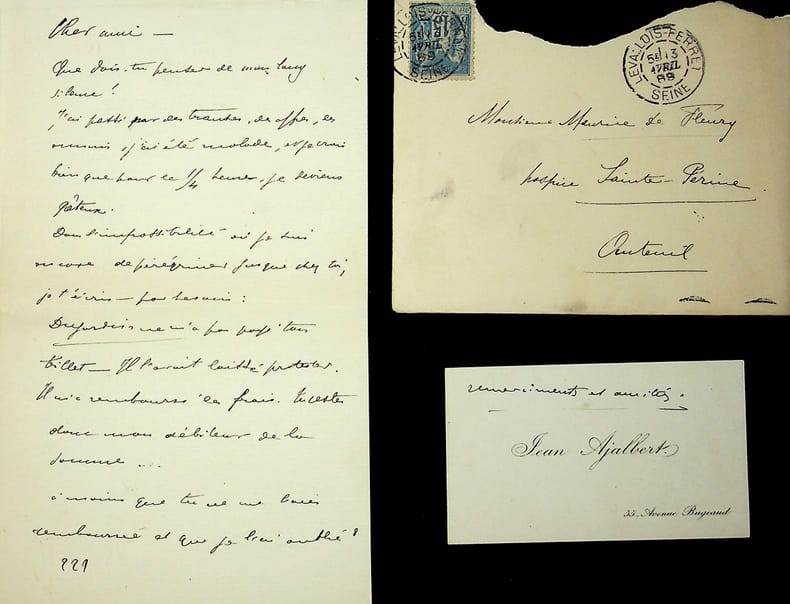 Cher ami —
Que dois-tu penser de mon long
silence!
J'ai passé par des transes, des affres, des
ennuis, j'ai été malade, et je crois
bien que pour le 1/4 heure, je deviens
gâteux.
Dans l'impossibilité où je suis
encore de pérégriner jusque chez toi,
je t'écris — par besoin :
Dujardin ne m'a pas payé ton
billet — Il l'avait laissé protester.
Il m'a remboursé les frais. Tu restes
donc mon débiteur de la
somme ...
à moins que tu ne me l'aies
remboursée et que je l'aie oublié!
???
LEVALLOIS-PERRET
15
AVRIL
89
SEINE
LEVALLOIS-PERRET
5E 13
AVRIL
89
SEINE
Monsieur Maurice de Fleury
hospice Sainte-Périne.
Auteuil
remerciments et amitiés.
Jean Ajalbert
55, Avenue Bugeaud